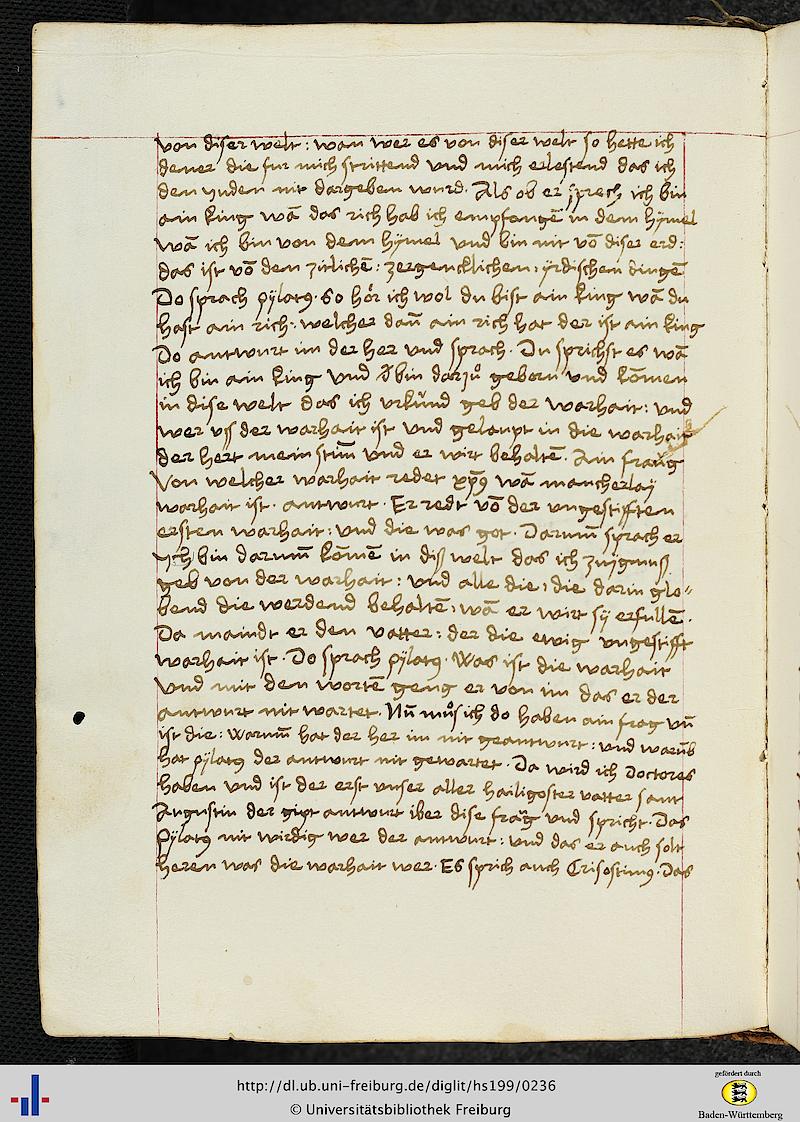 von diser welt : wan wer es von diser welt so hette ich
dener die fur mich strittend vnd mich erlestend das ich
den yuden nit dargeben wurd · Als ob er sprech, ich bin
ain king wā das rich hab ich empfangē in dem hÿmel
wā ich bin von dem hÿmel vnd bin nit vō diser erd :
das ist vō den zitlichē : zergencklichen : ÿrdischen dingē
Do sprach pÿlatꝰ · So hör ich wol du bist ain king wā du
hast ain rich · welcher dañ ain rich hat der ist ain king
Do antwurt im der her vnd sprach · Du sprichst es wā
ich bin ain king vnd bin darzů geborn vnd kōmen
in dise welt das ich vrkünd geb der warhait : vnd
wer vſſ der warhait ist vnd gelaupt in die warhait
der hert mein stim̄ vnd er wirt behaltē · Ain frag
Von welcher warhait redet xp̄ꝰ wā mancherlaÿ
warhait ist · antwurt · Er redt vō der vngestifften
ersten warhait : vnd die was got · Darum̄ sprach er
ych bin darum̄ kōmē in diß welt das ich zuignuß
geb von der warhait : vnd alle die, die darin glo⸗
bend die werdend behaltē : wā er wirt sÿ erfullē ·
Da maindt er den vatter : der die ewig vngestifft
warhait ist · Do sprach pÿlatꝰ · Was ist die warhait
Vnd mit den wortē geng er von im das er der
antwurt nit wartet · Nū můs ich do haben ain frag vn̄
ist die : Warum̄ hat der her im nit geantwurt : vnd warūb
hat pÿlatꝰ der antwurt nit gewartet · Da wird ich doctores
haben vnd ist der erst vnser aller hailigoster vatter sant
Augustin der gipt antwurt iber dise frag vnd spricht · Das
Pÿlatꝰ nit wirdig wer der antwurt : vnd das er auch solt
heren was die warhait wer · Es sprich auch Crisostimꝰ · Das
http://dl.ub.uni-freiburg.de/diglit/hs199/0236
© Universitätsbibliothek Freiburg
gefördert durch
Baden-Württemberg